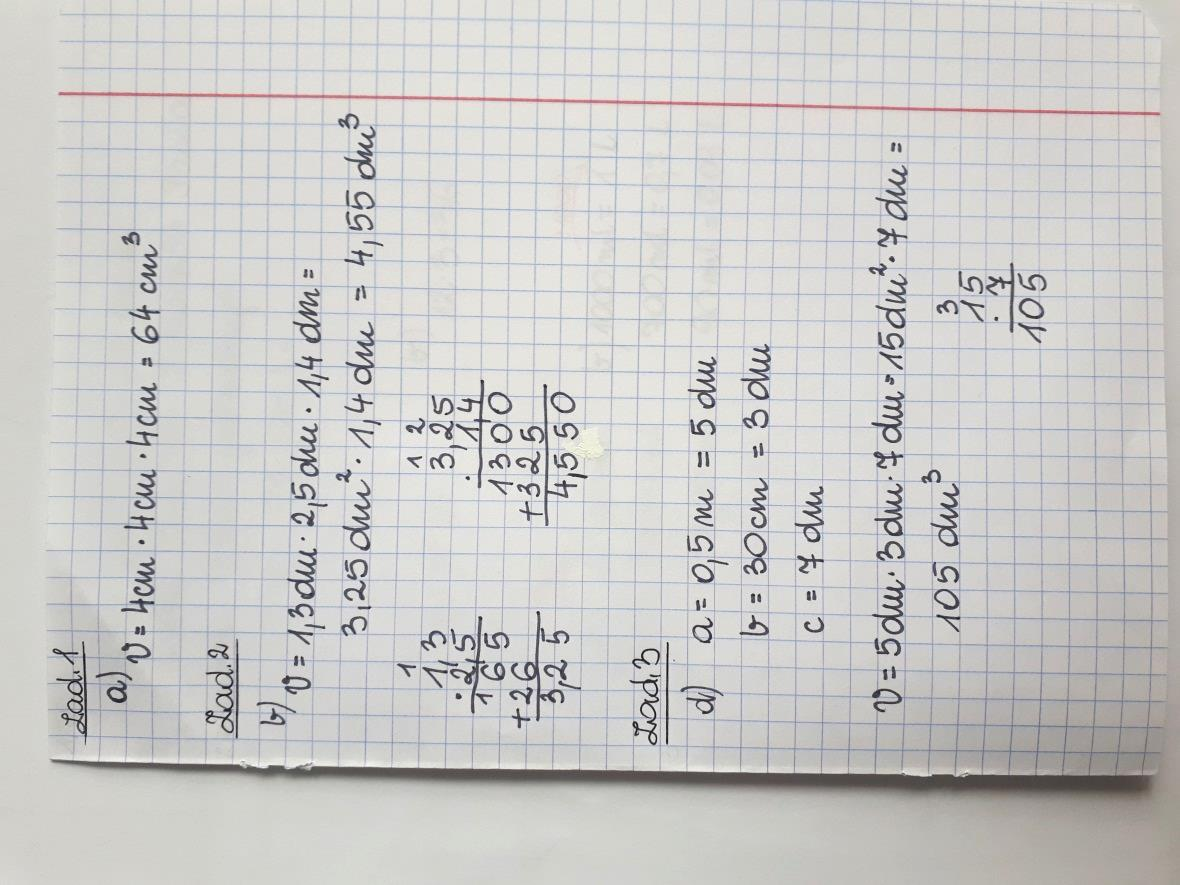 Zad.1
a) V = 4cm · 4cm · 4cm = 64 cm³
Zad.2
b) V = 1,3dm · 2,5dm · 1,4 dm =
3,25 dm² · 1,4 dm = 4,55 dm³
1
1,3
· 2,5
1 65
+ 26
3,2 5
1 2
3,25
· 1,4
1300
+325
4,550
Zad.3
d) a = 0,5m = 5 dm
b = 30cm = 3 dm
c = 7 dm
V = 5dm · 3dm · 7dm = 15dm² · 7 dm =
105 dm³
3
15
· 7
105